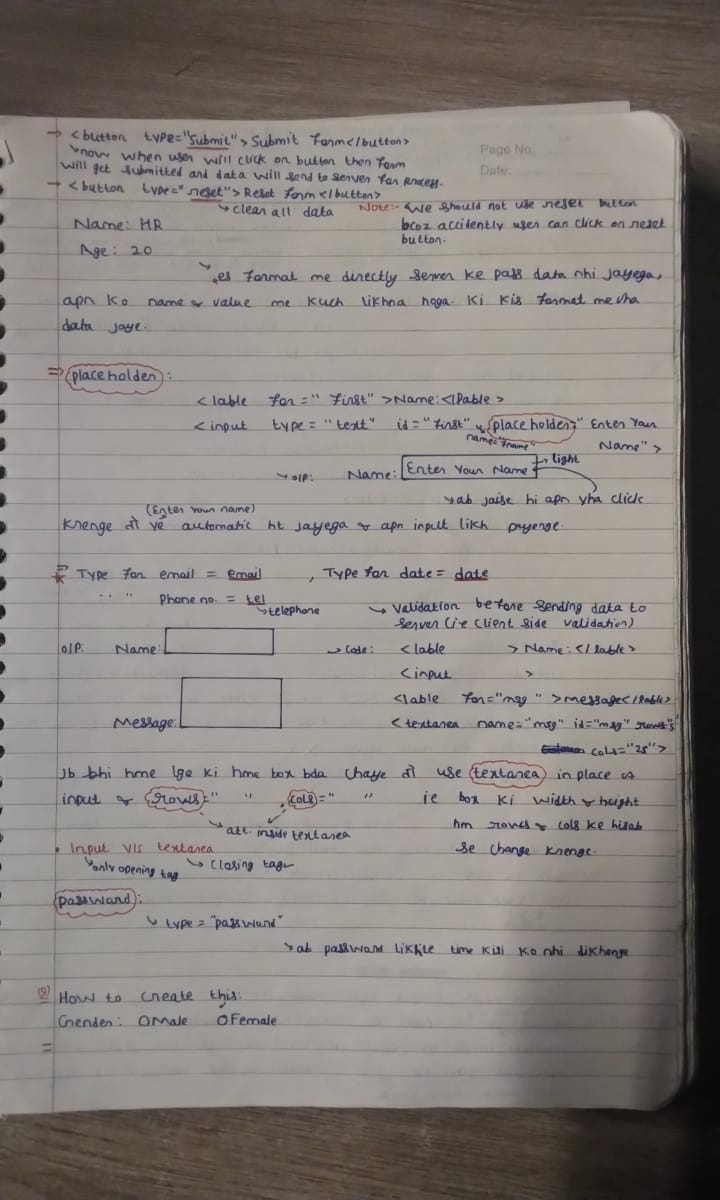 → <button type="Submit"> Submit Form</button>
Page No:
↳ now when user will click on button then form
will get submitted and data will send to server for process.
Date:
→ <button type="reset"> Reset form </button>
↳ clear all data
Note:- We should not use reset button
bcoz accidently user can click on reset
button.
Name: HR
Age: 20
↳ es format me directly server ke pass data nhi jayega,
apn ko name & value me kuch likhna hoga. Ki kis format me vha
data jaye.
⇒ placeholder:
<lable for="first">Name:</lable>
<input type="text" id="first", placeholder="Enter Your
name="fname"
Name">
↳ O/P: Name: Enter Your Name → light
↳ ab jaise hi apn vha click
(Enter your name)
krenge तो ye automatic ht jayega & apn input likh payenge.
⇒ * Type for email = email, Type for date = date
" " Phone no. = tel
↳ telephone
→ Validation before sending data to
server (i.e client side validation)
O/P: Name:
→ Code: <lable > Name: </lable>
<input >
<lable for="msg" >message</lable>
Message:
<textarea name="msg" id="msg" rows="5"
cols="25">
Jb bhi hme lge ki hme box bda chaiye तो use textarea in place of
input & rows=" " , cols=" " ie box ki width & height
↳ att. inside textarea
hm rows & cols ke hisab
se change krenge.
• Input v/s textarea
↳ only opening tag
↳ closing tag
password:
↳ type = "password"
↳ ab password likhte time kisi ko nhi dikhenge
Q) How to create this:
Gender: O Male O Female
=